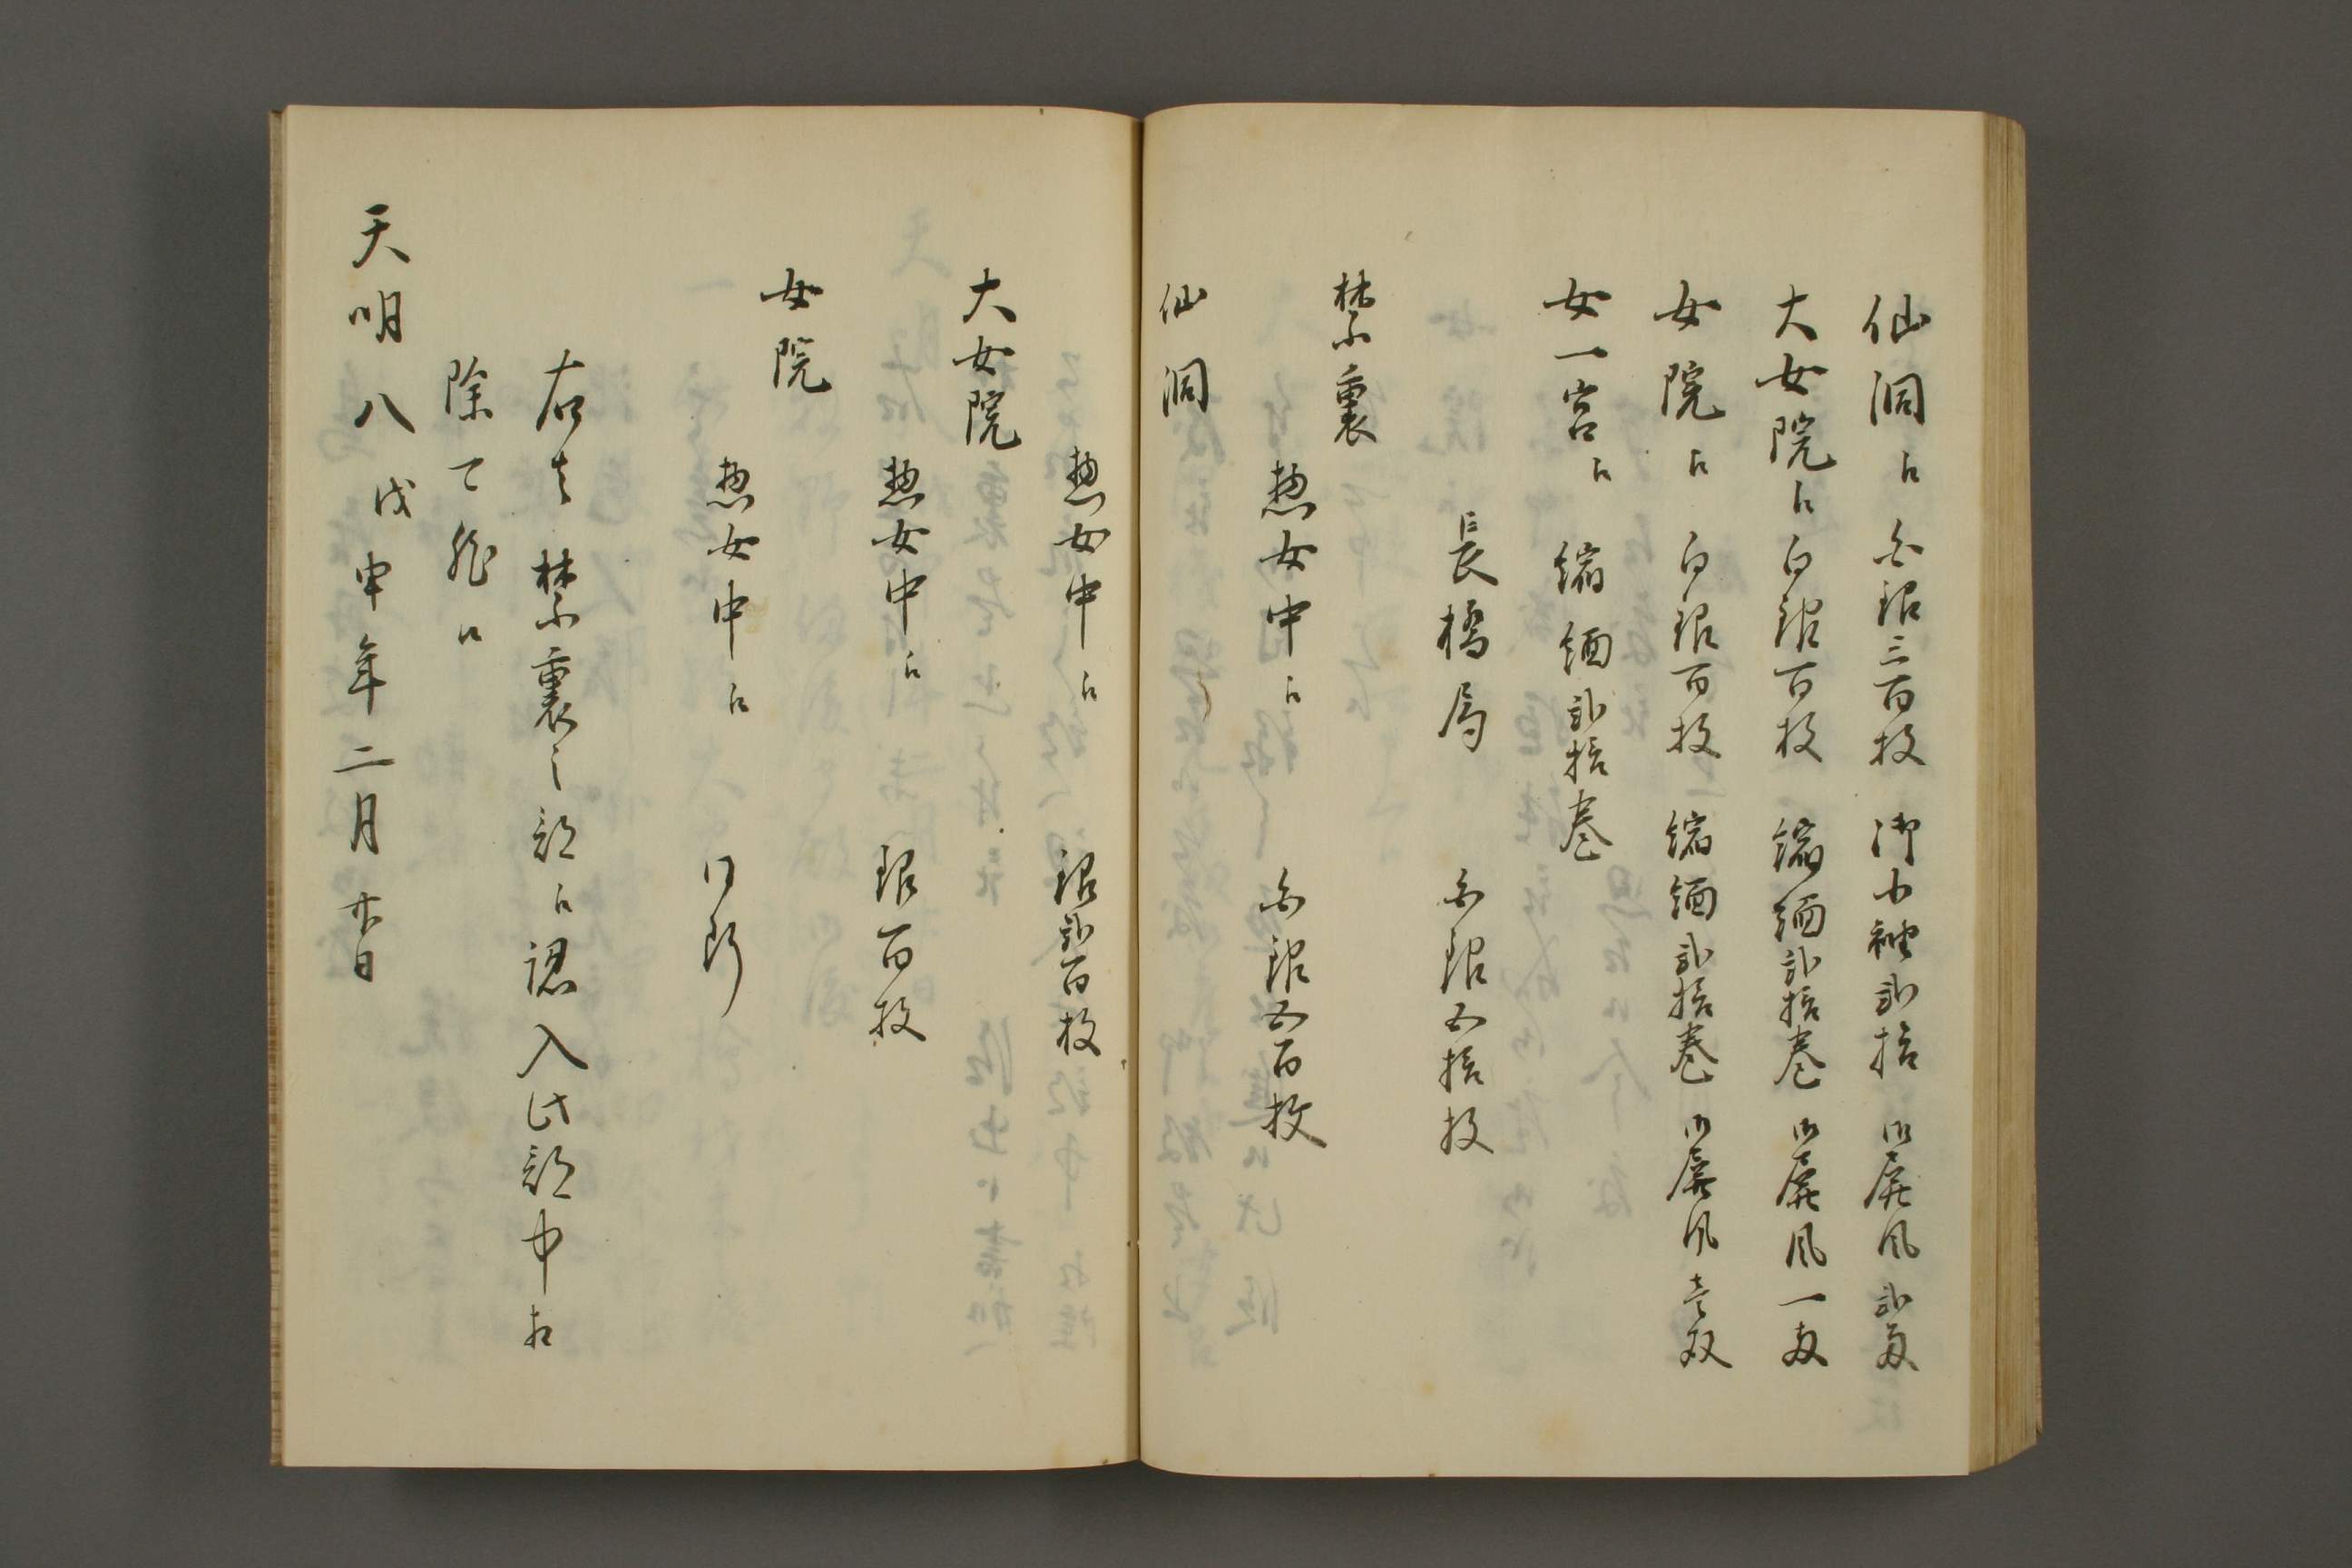 仙洞江 白銀三百枚 御小袖弐拾 御屏風弐双
大女院江 白銀百枚 縮緬弐拾巻 御屏風一双
女院江 白銀百枚 縮緬弐拾巻 御屏風壱双
女一宮江 縮緬弐拾巻
長橋局 白銀五拾枚
禁裏
惣女中江 白銀五百枚
仙洞
惣女中江 銀弐百枚
大女院
惣女中江 銀百枚
女院
惣女中江 同断
右者 禁裏之部江認入此部中相
除可然候
天明八戊申年二月廿日